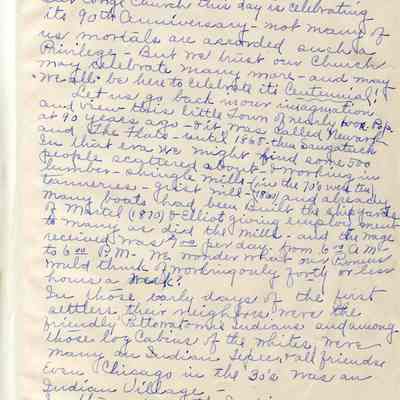 Our Cong'l Church this day is celebrating
its 90th Anniversary - not many of
us mortals are accorded such a
Privilege - But we trust our Church
may celebrate many more - and may
we all be here to celebrate its Centennial!
Let us go back in our imagination
and view this little Town of nearly 1000 Pop.
at 90 years ago - & it was called Newark
and The Flats - until 1868 - then Saugatuck
In that era we might find some 500
people scattered about - & working in
lumber - shingle mills - (in the 70's were the
tanneries - grist mill - and already
many boats had been built the ship yards
of Martel (1870) & Elliot giving employment
to many as did the mills - and the wage
received was per day from 6 00 A.M.
to 6 00 P.M. We wonder what our
would think of working only forty or less
hours a week?
In those early days of the first
settlers their neighbors were the
friendly Pottowatomie Indians and among
those log Cabins of the whites were
many an Indian Tepee & all friends
Even Chicago in the 30's was an
Indian Village -